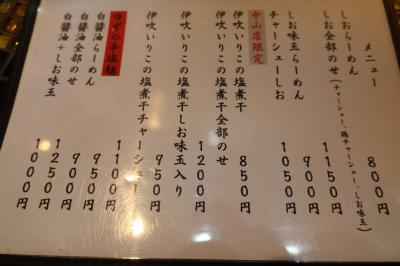 メニュー
しおらーめん 800円
しお全部のせ(チャーシュー、鶏チャーシュー、しお味玉) 1150円
しお味玉らーめん 900円
チャーシューしお 1050円
中山店限定
伊吹いりこの塩煮干 850円
伊吹いりこの塩煮干全部のせ 1200円
伊吹いりこの塩煮干しお味玉入り 950円
伊吹いりこの塩煮干チャーシュー 1100円
ゆずの辛塩麺 950円
白醤油らーめん 900円
白醤油全部のせ 1250円
白醤油+しお味玉 1000円